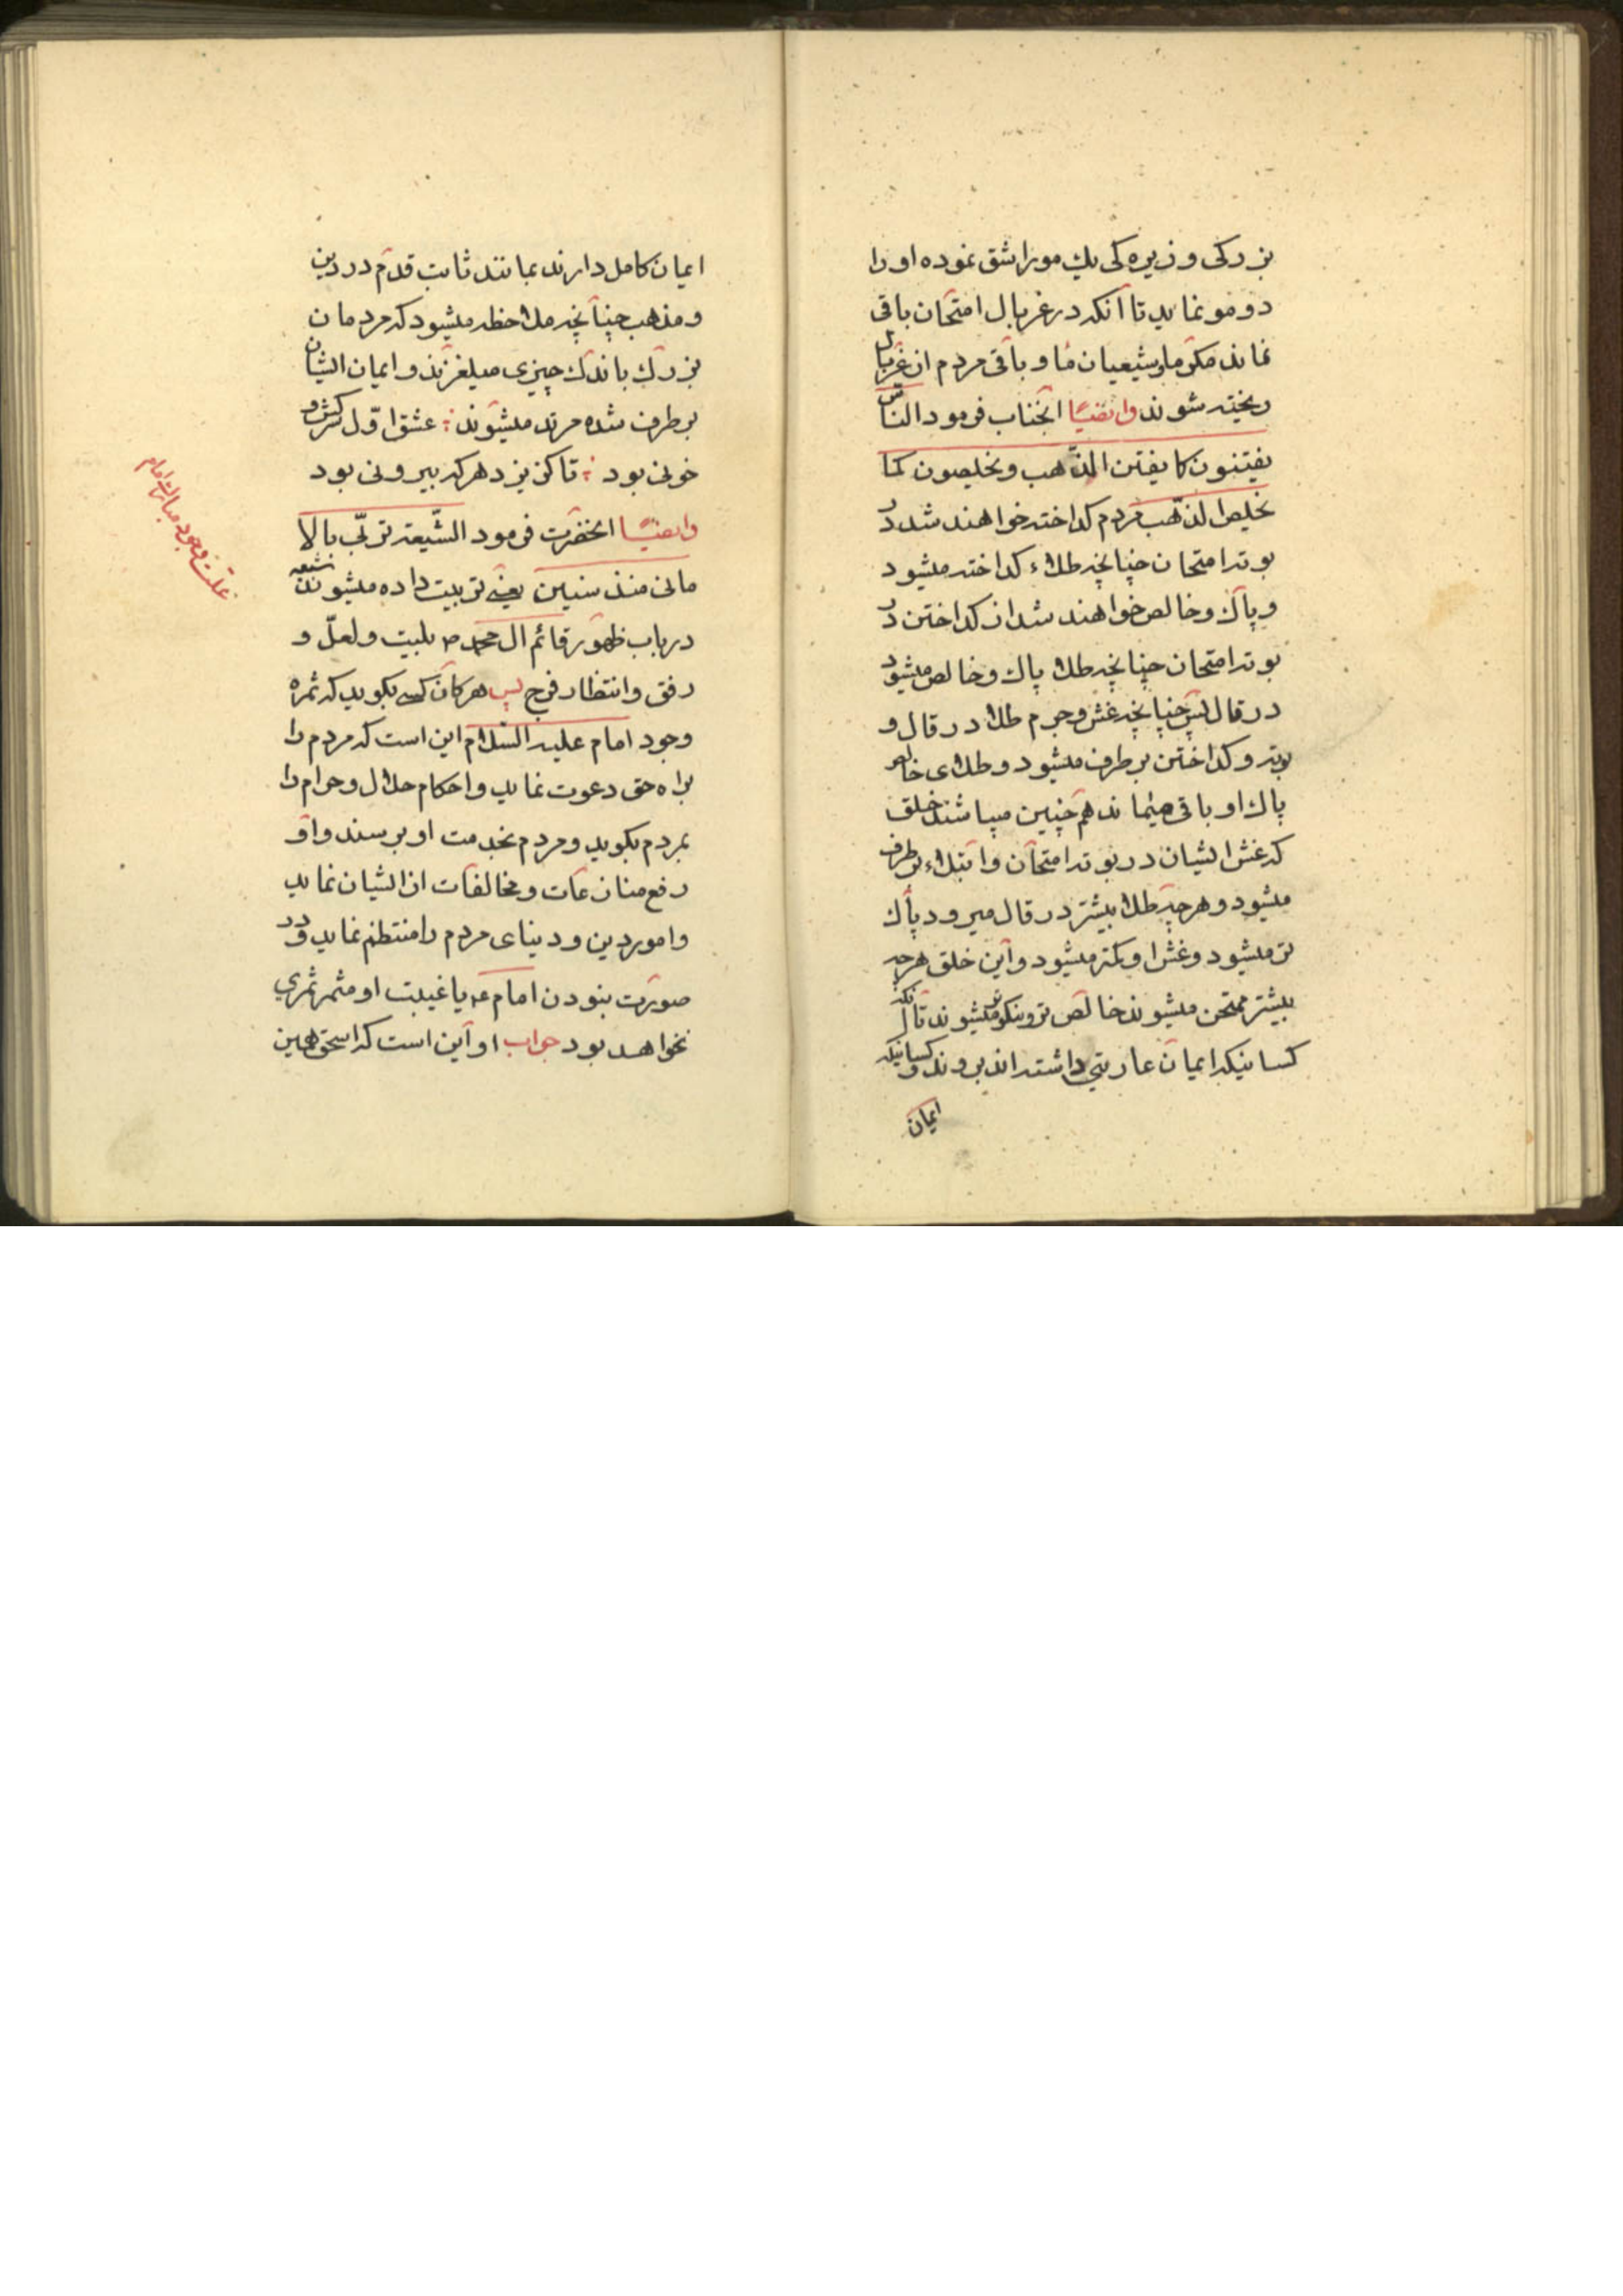 بزرکی و زیرکی یک مو را شق نموده او را
دو مو نماید تا آنکه در غربال امتحان باقی
نماند مکر ما و شیعیان ما و باقی مردم از غربال
ریخته شوند وایضًا انجناب فرمود الناس
یفتنون کما یفتن الذّهب و یخلصون کما
یخلص الذّهب مردم کداخته خواهند شد در
بوته امتحان چنانچه طلاء کداخته میشود
و پاک و خالص خواهند شد از کداختن در
بوته امتحان چنانچه طلا پاک و خالص میشود
در قال پس چنانچه غش و جرم طلا در قال و
بوته و کداختن برطرف میشود و طلای خالص
پاک او باقی میماند هم چنین میباشند خلق
که غش ایشان در بوته امتحان و ابتلاء برطرف
میشود و هرچه طلا بیشتر در قال میرود پاک
تر میشود و غش او کمتر میشود و این خلق هرچه
بیشتر ممتحن میشوند خالص تر و نیکوتر میشوند تا آنکه
کسانیکه ایمان عاریتی داشته اند بروند و کسانیکه
ایمان
ایمان کامل دارند بمانند ثابت قدم در دین
و مذهب چنانچه ملاحظه میشود که مردمان
بزرک باندک چیزی میلغزند و ایمان ایشان
برطرف شده مرتد میشوند عشق اوّل سرکش و
خونی بود تا کزیزد هرکه بیرونی بود
وایضًا انحضرت فرمود الشّیعة تربّی بالا
مانی منذ سنین یعنی تربیت داده میشوند شیعه
در باب ظهور قائم ال محمد ص بلیت و لعلّ و
رفق و انتظار فرج پس هرکاه کسی بکوید که ثمره
وجود امام علیه السّلام این است که مردم را
براه حق دعوت نماید و احکام حلال و حرام را
بمردم بکوید و مردم بخدمت او برسند و او
رفع منازعات و مخالفات از ایشان نماید
و امور دین و دنیای مردم را منتظم نماید و در
صورت نبودن امام ع یا غیبت او مثمر ثمری
نخواهد بود جواب او این است که اسحق همین
علّت وجود مبارک امام